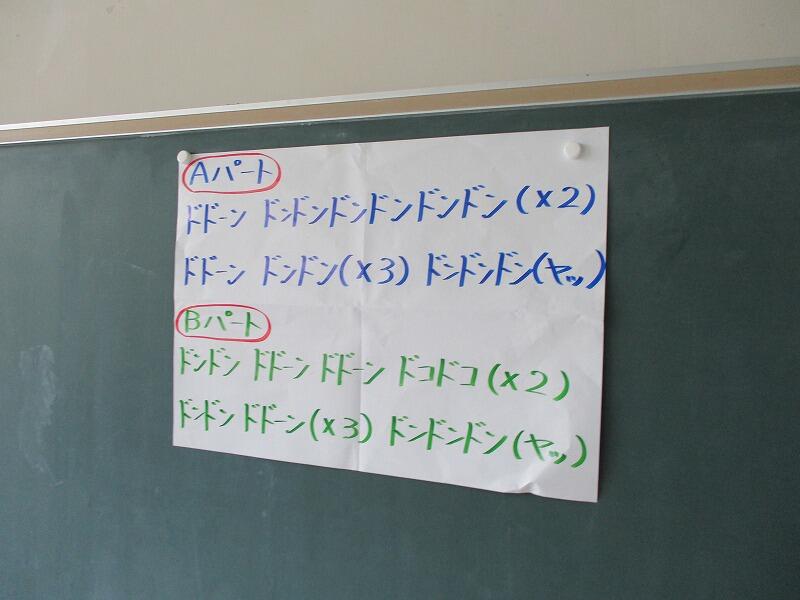 Aパート
ドドーン ドンドンドンドンドンドン(×2)
ドドーン ドンドン(×3) ドンドンドン(ヤッ)
Bパート
ドンドン ドドーン ドドーン ドコドコ(×2)
ドンドン ドドーン(×3) ドンドンドン(ヤッ)